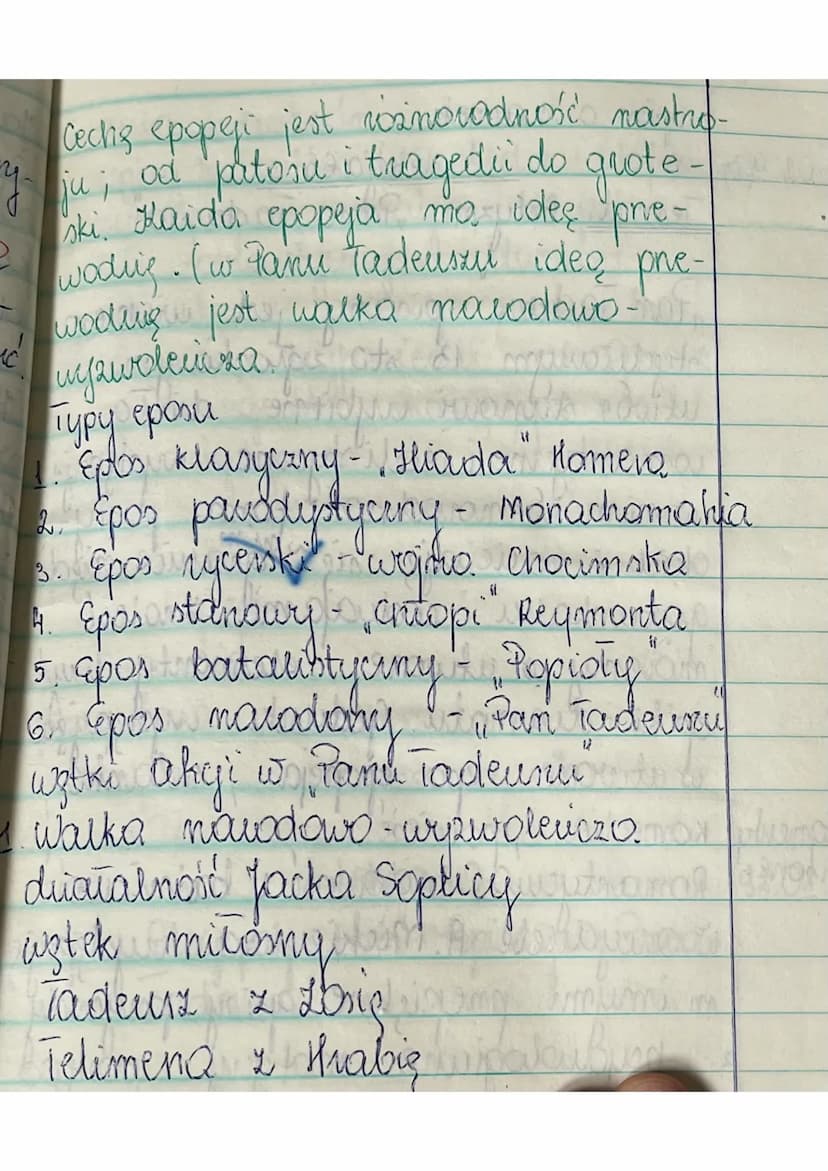 Cechą epopeji jest różnorodność nastro-
ju; od patosu i tragedii do grote-
ski. Każda epopeja ma ideę prze-
wodnią. (w Panu Tadeuszu ideą prze-
wodnią jest walka narodowo-
wyzwoleńcza.
Typy eposu
1. Epos klasyczny - „Iliada" Homera
2. Epos parodystyczny - Monachomahia
3. Epos rycerski - wojna Chocimska
4. Epos stanowy - „Chłopi" Reymonta
5. Epos batalistyczny - „Popioły"
6. Epos narodowy - „Pan Tadeusz"
wątki akcji w „Panu Tadeuszu"
1. Walka narodowo-wyzwoleńcza
działalność Jacka Soplicy
wątek miłosny
Tadeusz z Zosią
Telimena z Hrabią